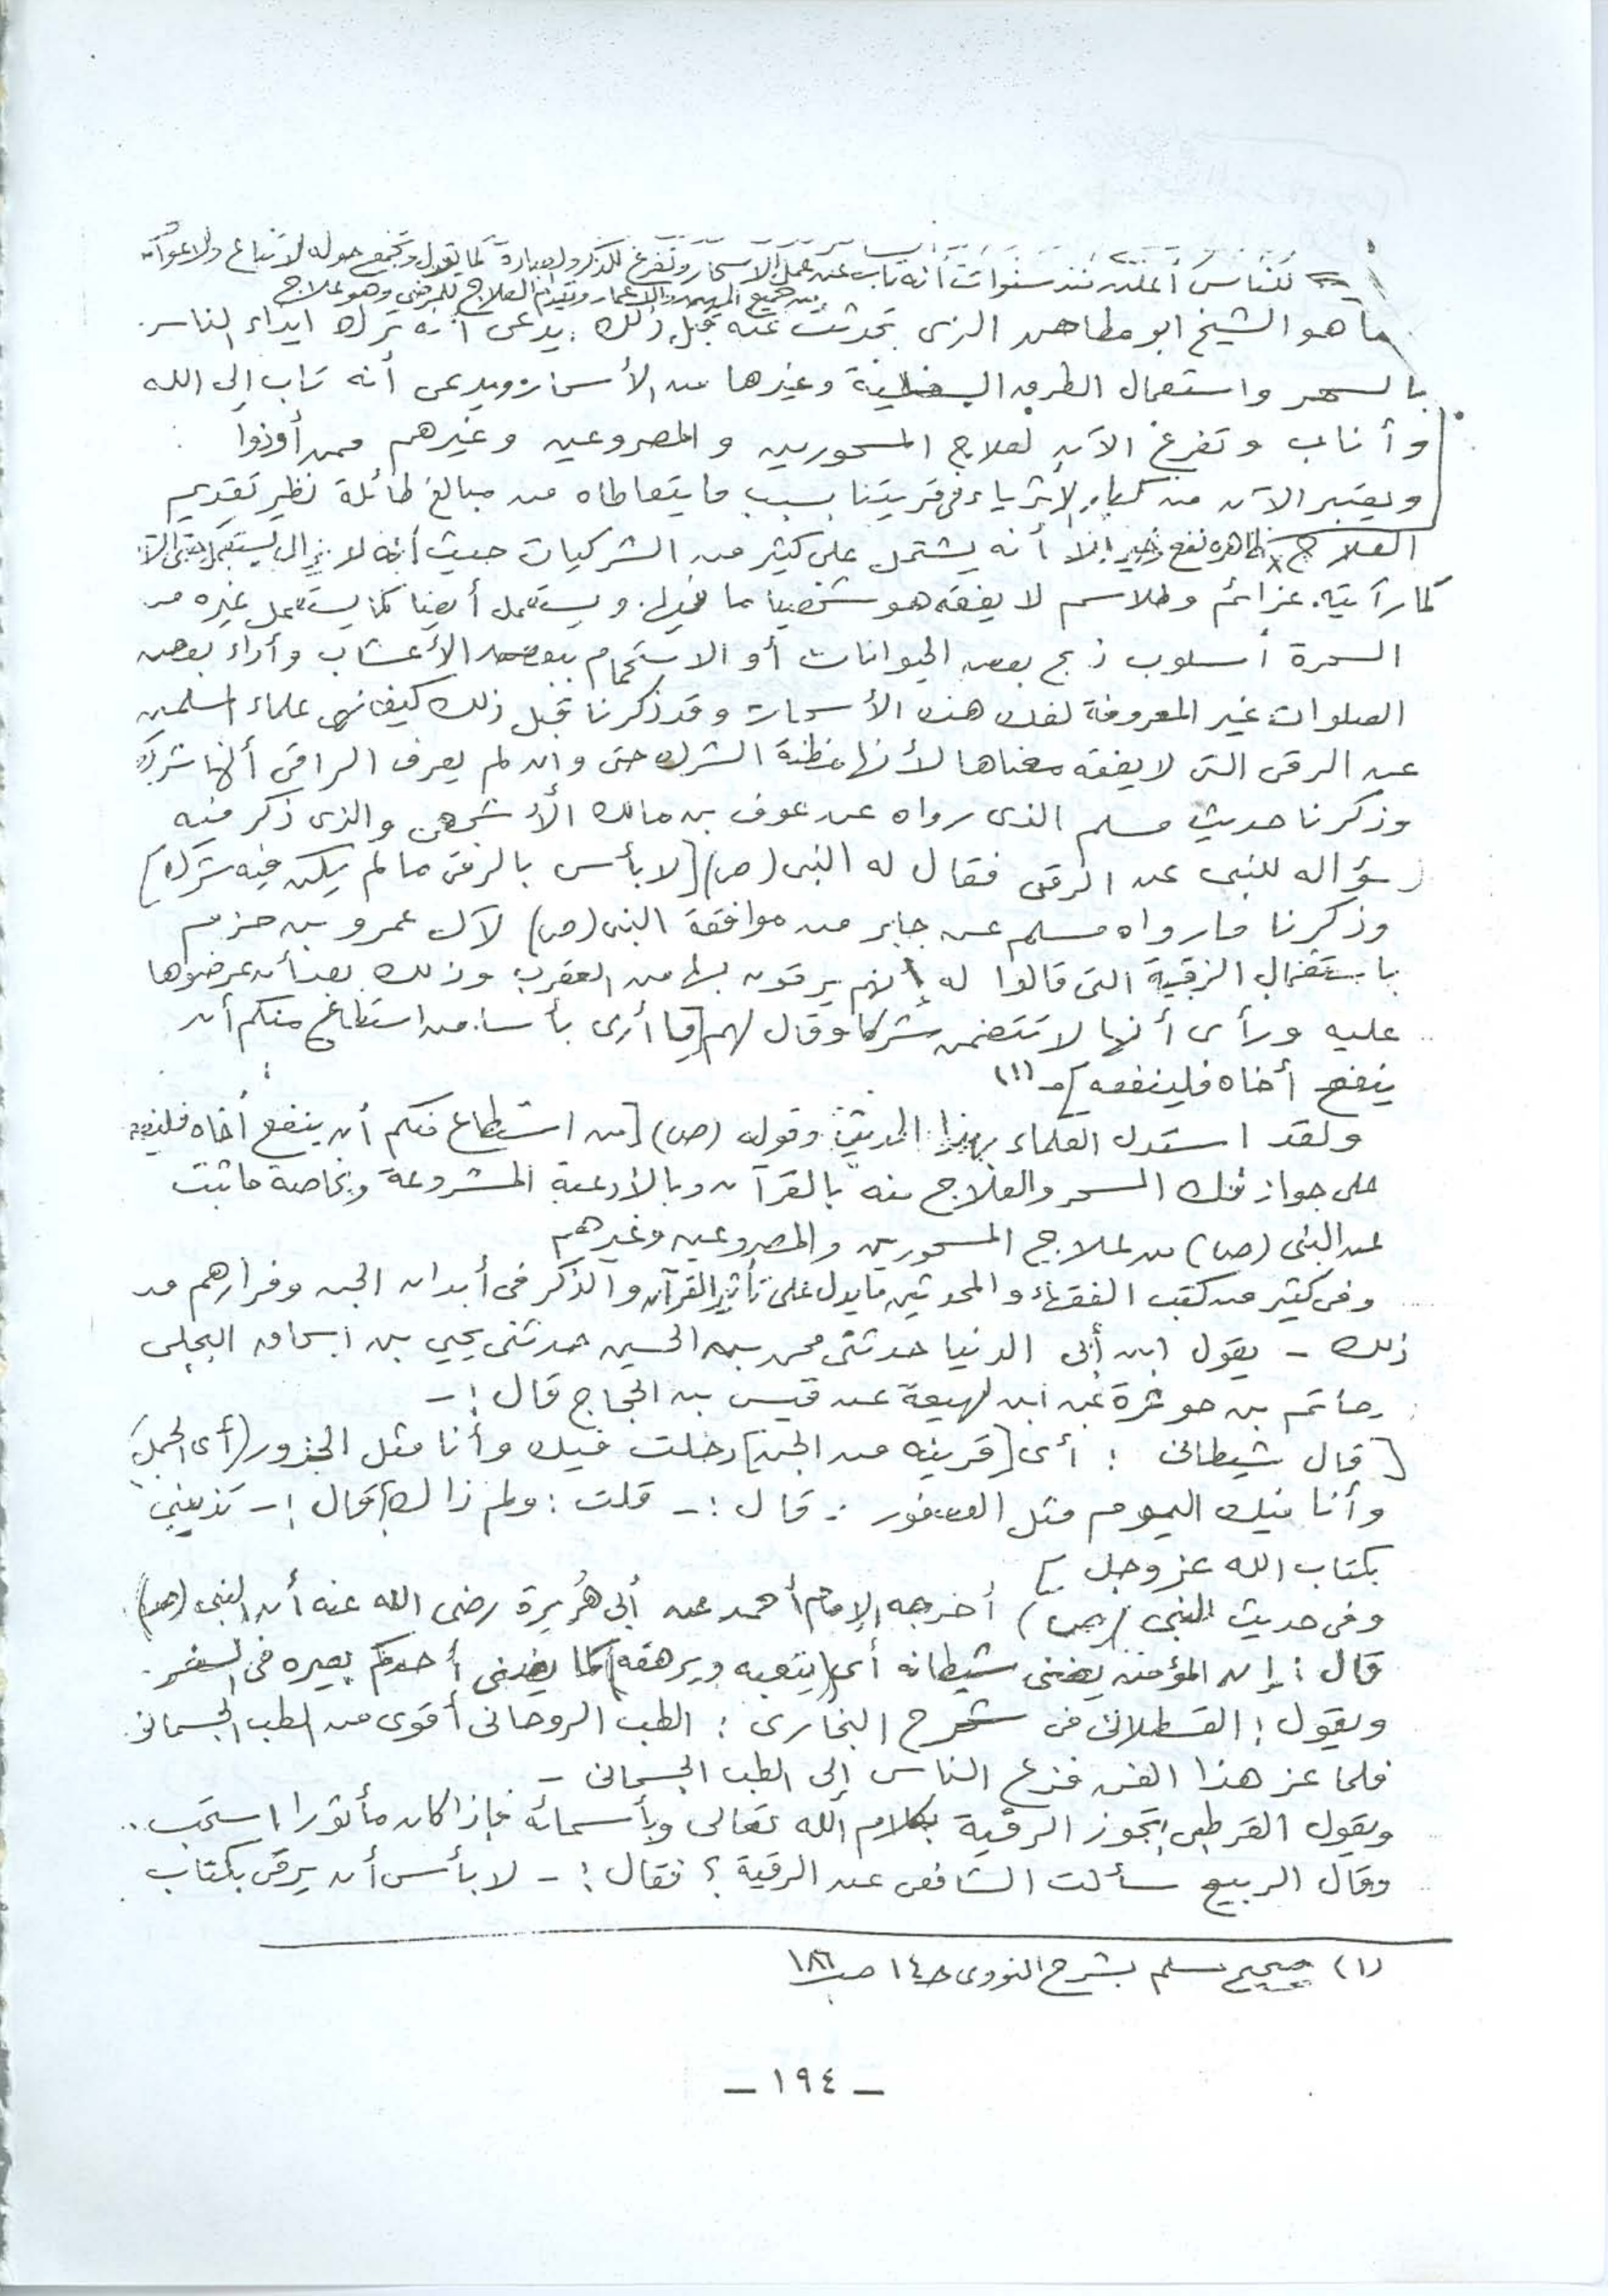 للناس أعلن منذ سنوات أنه تاب عن عمل الأسحار وتفرغ للذكر والعبادة كما يقول وتجمع حوله الأتباع والأعوان
من جميع والأعمار وتقديم العلاج للمرضى وهو علاج
ما هو الشيخ ابو مطاحن الذى تحدثت عنه قبل ذلك يدعى أنه ترك ايذاء الناس
بالسحر واستعمال الطرق السفلية وغيرها من الأسحار ويدعى أنه تاب إلى الله
وأناب وتفرغ الآن لعلاج المسحورين والمصروعين وغيرهم ممن أوذوا
ويعتبر الآن من كبار الأثرياء فى قريتنا بسبب ما يتعاطاه من مبالغ طائلة نظير تقديم
العلاج ظاهره نفع وخير إلا أنه يشتمل على كثير من الشركيات حيث أنه لا يزال يستعمل حتى الآن
كما رآيته عزائم وطلاسم لا يفقه هو شخصيا ما فيها. ويستعمل أيضا كما يستعمل غيره من
السحرة أسلوب ذبح بعض الحيوانات أو الاستحمام ببعض الأعشاب وأداء بعض
الصلوات غير المعروفة لفك هذه الأسحار وقد ذكرنا قبل ذلك كيف نهى علماء المسلمين
عن الرقى التى لا يفقه معناها لأنها مظنة الشرك حتى وان لم يعرف الراقى أنها شرك
وذكرنا حديث مسلم الذى رواه عن عوف بن مالك الأشجعى والذى ذكر فيه
سؤاله للنبى عن الرقى فقال له النبى (ص) [لا بأس بالرقى ما لم يكن فيه شرك]
وذكرنا ما رواه مسلم عن جابر من موافقة النبى (ص) لآل عمرو بن حزم
باستعمال الرقية التى قالوا له إنهم يرقون بها من العقرب وذلك بعد أن عرضوها
عليه ورأى أنها لا تتضمن شركا وقال لهم [ما أرى بأسا. من استطاع منكم أن
ينفع أخاه فلينفعه] - (١)
ولقد استدل العلماء بهذا الحديث وقوله (ص) [من استطاع منكم أن ينفع أخاه فلينفعه
على جواز فك السحر والعلاج منه بالقرآن وبالأدعية المشروعة وبخاصة ما ثبت
عن النبى (ص) من علاج المسحورين والمصروعين وغيرهم
وفى كثير من كتب الفقهاء والمحدثين ما يدل على تأثير القرآن والذكر فى أبدان الجن وفرارهم من
ذلك - يقول ابن أبى الدنيا حدثنى محمد بن الحسين حدثنى يحيي بن اسحاق البجلى
عن ابن لهيعة عن قيس بن الحجاج قال :-
[قال شيطانى : أى [قرينه من الجن] دخلت فيك وأنا مثل الجزور (أى الجمل)
وأنا فيك اليوم مثل العصفور : قال :- قلت : ولم ذاك؟ قال :- تذيبنى
بكتاب الله عز وجل ]
وفى حديث النبى (ص) أخرجه الإمام أحمد عن أبى هُريرة رضى الله عنه أن النبى (ص)
قال : إن المؤمن ينضى شيطانه أى (يتعبه ويرهقه) كما ينضى أحدكم بعيره فى السفر.
ويقول : القسطلانى فى شرح البخارى : الطب الروحانى أقوى من الطب الجسمانى.
فلما عز هذا الفن فزع الناس إلى الطب الجسمانى -
ويقول القرطبى تجوز الرقية بكلام الله تعالى وبأسمائه فإذا كان مأثورا استحب..
وقال الربيع سألت الشافعى عن الرقية ؟ فقال :- لا بأس أن يرقى بكتاب
(١) صحيح مسلم بشرح النووى حـ ١٤ صـ ١٨٦
- ١٩٤ -